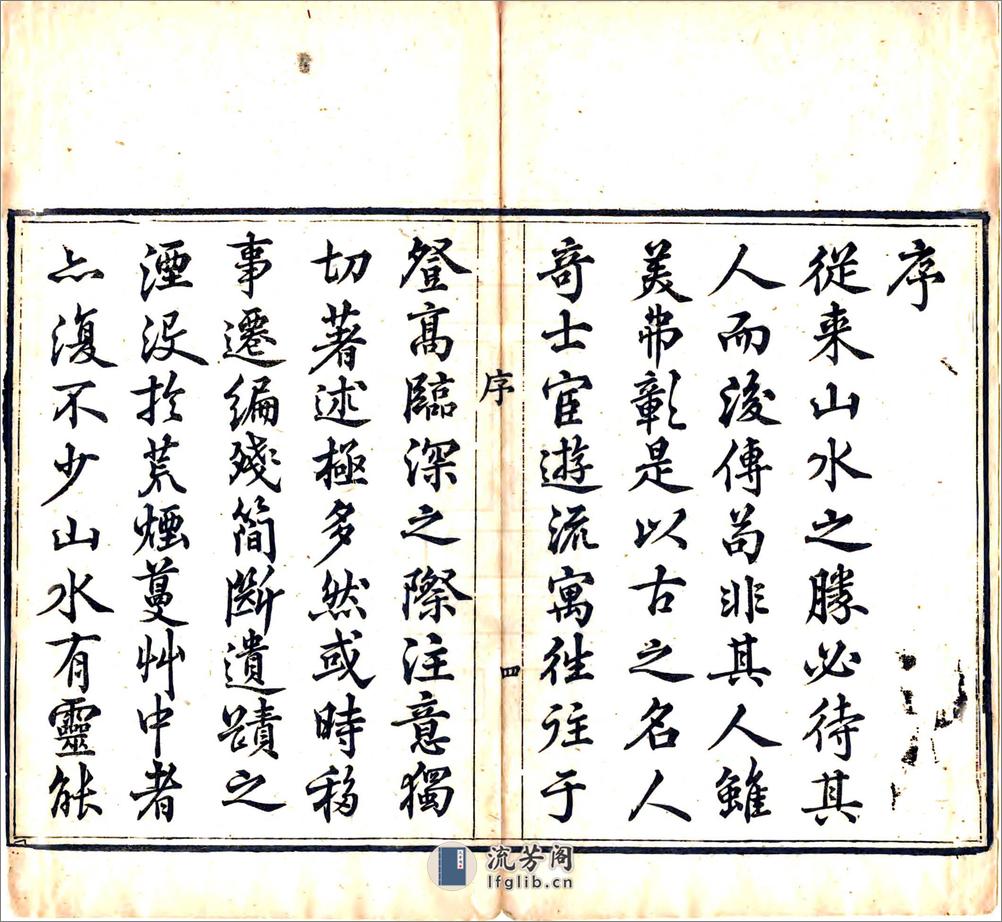 序
從来山水之勝必待其
人而後傳苟非其人雖
美弗彰是以古之名人
竒士宦遊流寓徃往于
序
四
登髙臨深之際注意獨
切著述極多然或時移
事遷編殘簡斷遺蹟之
湮没扵荒煙蔓艸中者
亦復不少山水有靈能
流芳阁
lfglib.cn